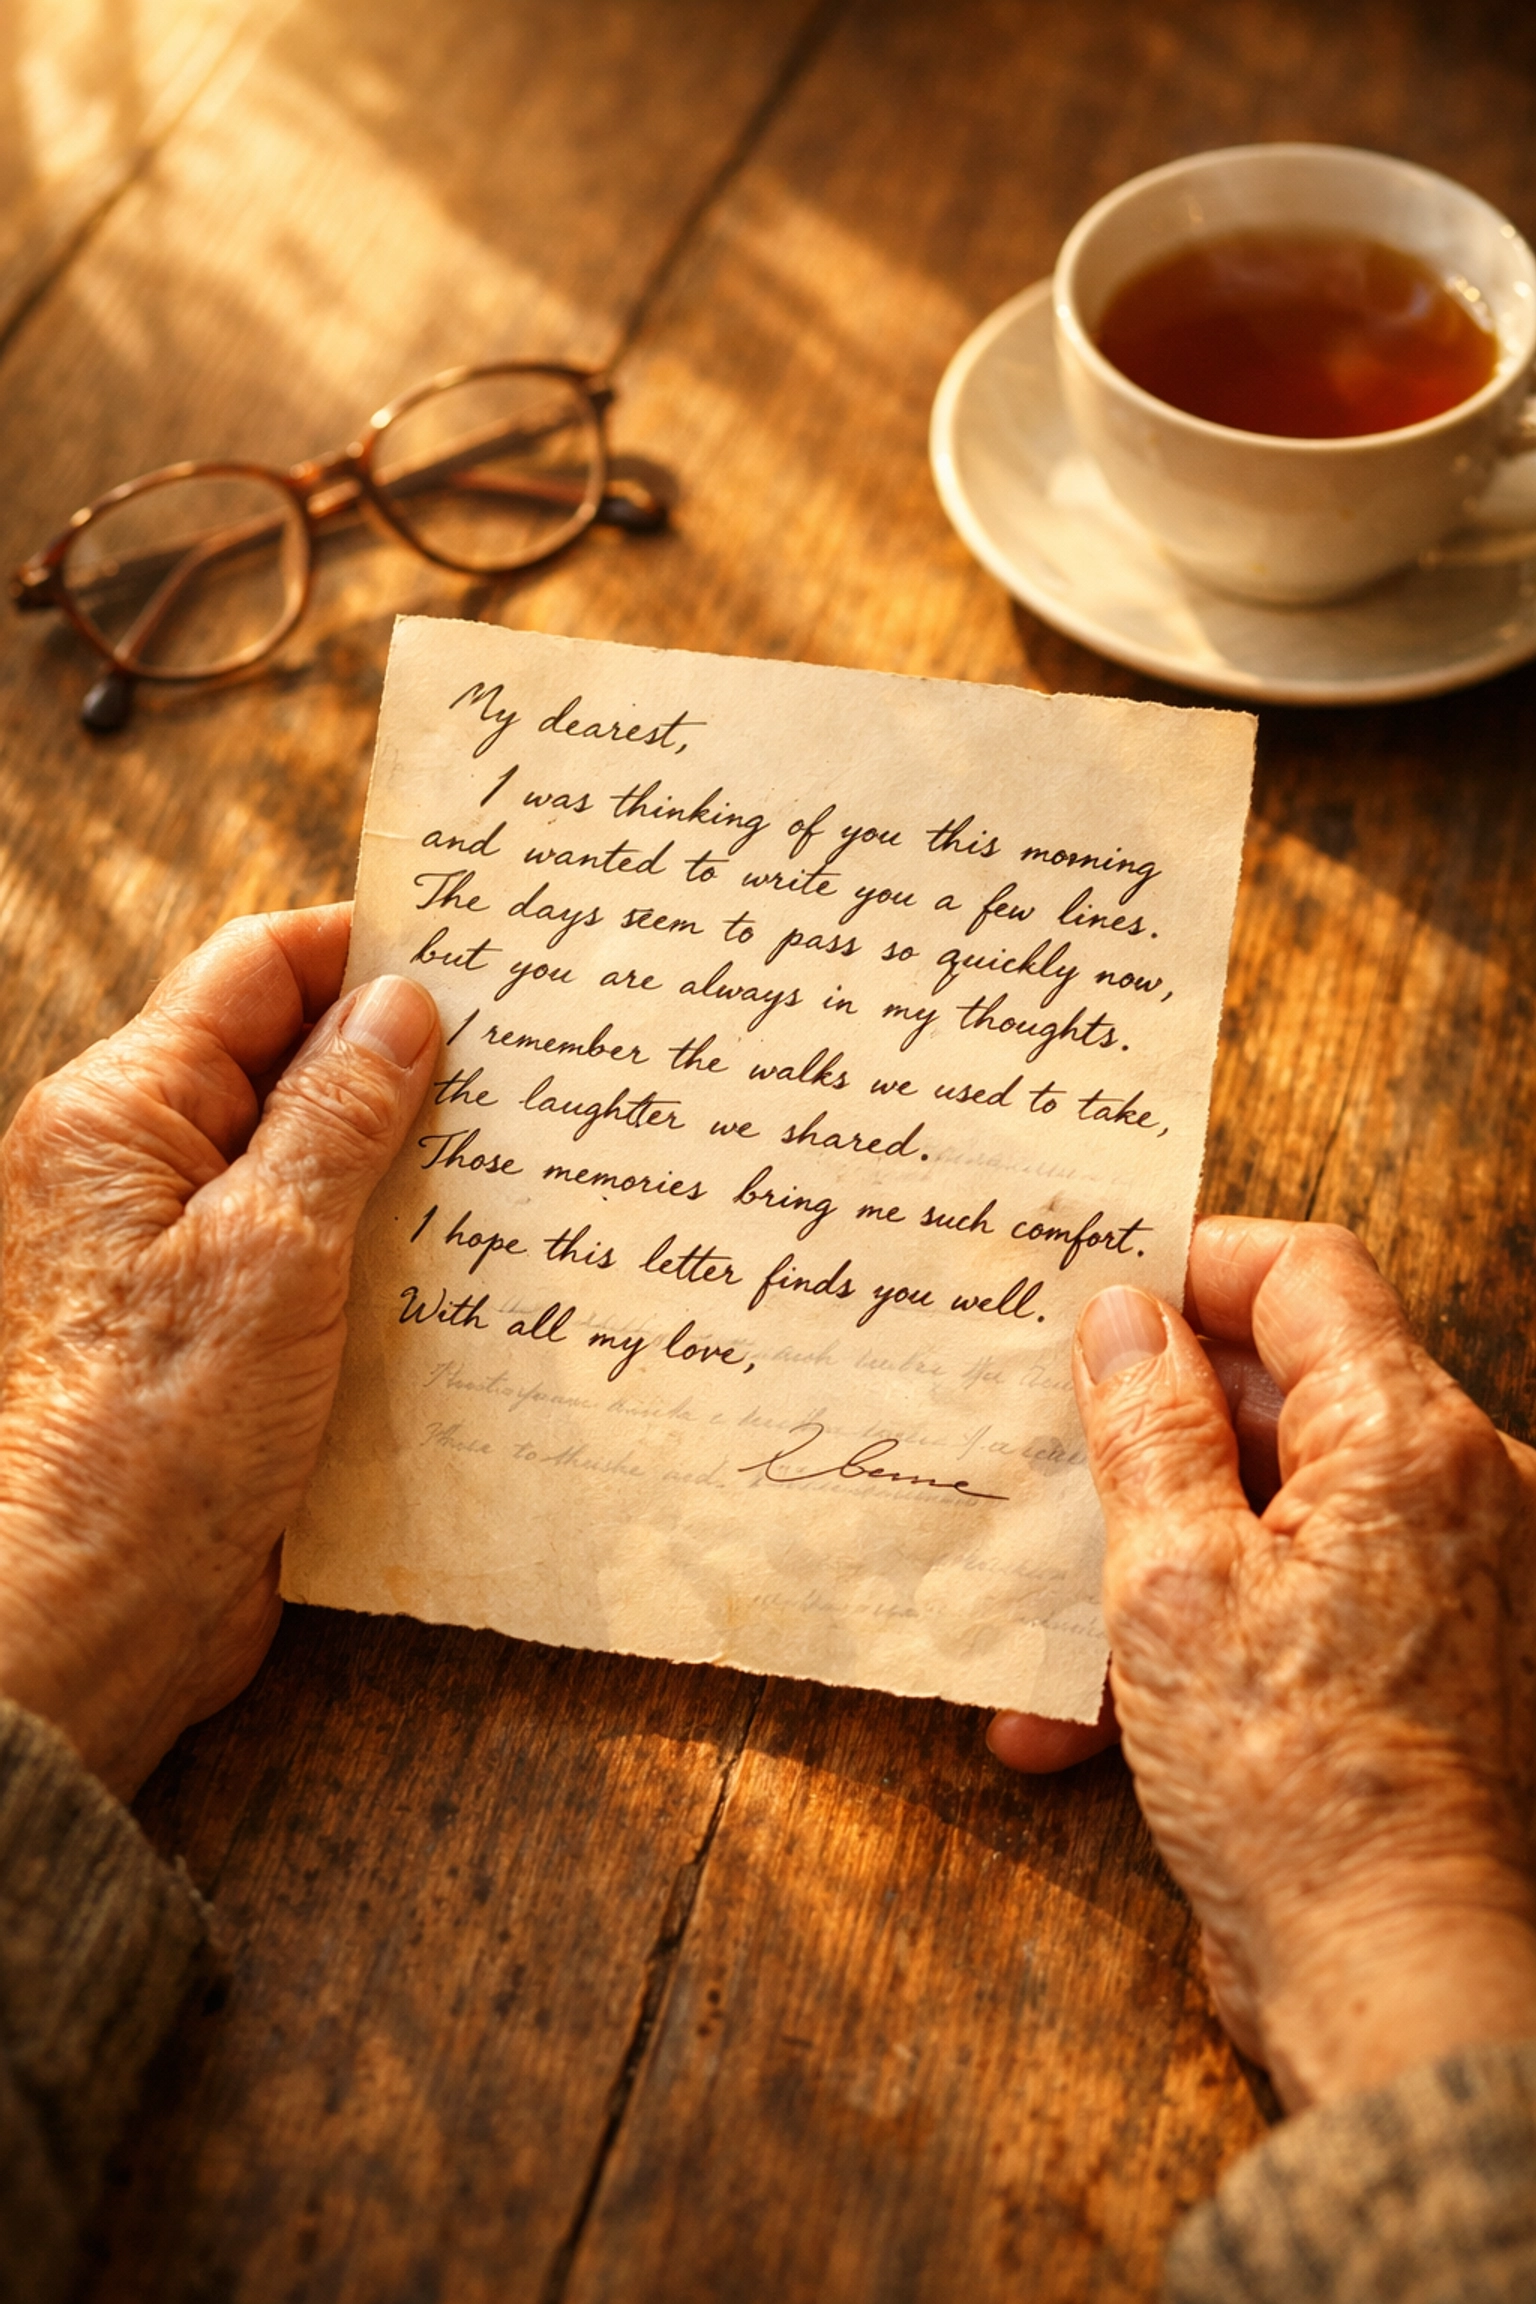 My dearest,
I was thinking of you this morning
and wanted to write you a few lines.
The days seem to pass so quickly now,
but you are always in my thoughts.
I remember the walks we used to take,
the laughter we shared.
Those memories bring me such comfort.
I hope this letter finds you well.
With all my love,